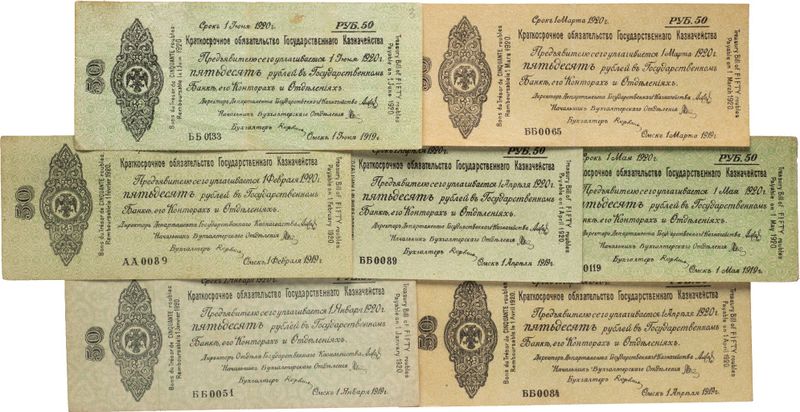 Срокъ 1 Июня 1920г. РУБ. 50
Краткосрочное обязательство Государственнаго Казначейства
Предъявителю сего уплачивается 1 Июня 1920г.
пятьдесятъ рублей въ Государственномъ
Банкѣ, его Конторахъ и Отдѣленіяхъ.
Директоръ Департамента Государственнаго Казначейства
Начальникъ Бухгалтерскаго Отдѣленія
Бухгалтеръ
ББ0133 Омскъ 1 Июня 1919г.
50
Bons du Trésor de CINQUANTE roubles
Remboursable le 1 Juin 1920.
Treasury Bill of FIFTY roubles
Payable on 1 June 1920.
Срокъ 1 Марта 1920г. РУБ. 50
Краткосрочное обязательство Государственнаго Казначейства
Предъявителю сего уплачивается 1 Марта 1920г.
пятьдесятъ рублей въ Государственномъ
Банкѣ, его Конторахъ и Отдѣленіяхъ.
Директоръ Департамента Государственнаго Казначейства
Начальникъ Бухгалтерскаго Отдѣленія
Бухгалтеръ
ББ0065 Омскъ 1 Марта 1919г.
50
Bons du Trésor de CINQUANTE roubles
Remboursable le 1 Mars 1920.
Treasury Bill of FIFTY roubles
Payable on 1 March 1920.
Краткосрочное обязательство Государственнаго Казначейства
Предъявителю сего уплачивается 1 Февраля 1920г.
пятьдесятъ рублей въ Государственномъ
Банкѣ, его Конторахъ и Отдѣленіяхъ.
Директоръ Департамента Государственнаго Казначейства
Начальникъ Бухгалтерскаго Отдѣленія
Бухгалтеръ
АА0089 Омскъ 1 Февраля 1919г.
50
Bons du Trésor de CINQUANTE roubles
Remboursable le 1 Février 1920.
Treasury Bill of FIFTY roubles
Payable on 1 February 1920.
Апрѣля 1920г. РУБ. 50
Краткосрочное обязательство Государственнаго Казначейства
Предъявителю сего уплачивается 1 Апрѣля 1920г.
пятьдесятъ рублей въ Государственномъ
Банкѣ, его Конторахъ и Отдѣленіяхъ.
Директоръ Департамента Государственнаго Казначейства
Начальникъ Бухгалтерскаго Отдѣленія
Бухгалтеръ
ББ0089 Омскъ 1 Апрѣля 1919г.
Treasury Bill of FIFTY roubles
Payable on 1 April 1920.
Срокъ 1 Мая 1920г. РУБ. 50
Государственнаго Казначейства
уплачивается 1 Мая 1920г.
рублей въ Государственномъ
Конторахъ и Отдѣленіяхъ.
Департамента Государственнаго Казначейства
Бухгалтерскаго Отдѣленія
Бухгалтеръ
0119 Омскъ 1 Мая 1919г.
Treasury Bill of FIFTY roubles
Payable on 1 May 1920.
Краткосрочное обязательство Государственнаго Казначейства
Предъявителю сего уплачивается 1 Января 1920г.
пятьдесятъ рублей въ Государственномъ
Банкѣ, его Конторахъ и Отдѣленіяхъ.
Казначейства
Начальникъ Бухгалтерскаго Отдѣленія
Бухгалтеръ
ББ0051 Омскъ 1 Января 1919г.
50
Bons du Trésor de CINQUANTE roubles
Remboursable le 1 Janvier 1920.
Treasury Bill of FIFTY roubles
Payable on 1 January 1920.
Краткосрочное обязательство Государственнаго Казначейства
Предъявителю сего уплачивается 1 Апрѣля 1920г.
пятьдесятъ рублей въ Государственномъ
Банкѣ, его Конторахъ и Отдѣленіяхъ.
Казначейства
Начальникъ Бухгалтерскаго Отдѣленія
Бухгалтеръ
ББ0084 Омскъ 1 Апрѣля 1919г.
50
Bons du Trésor de CINQUANTE roubles
Remboursable le 1 Avril 1920.
Treasury Bill of FIFTY roubles
Payable on 1 April 1920.